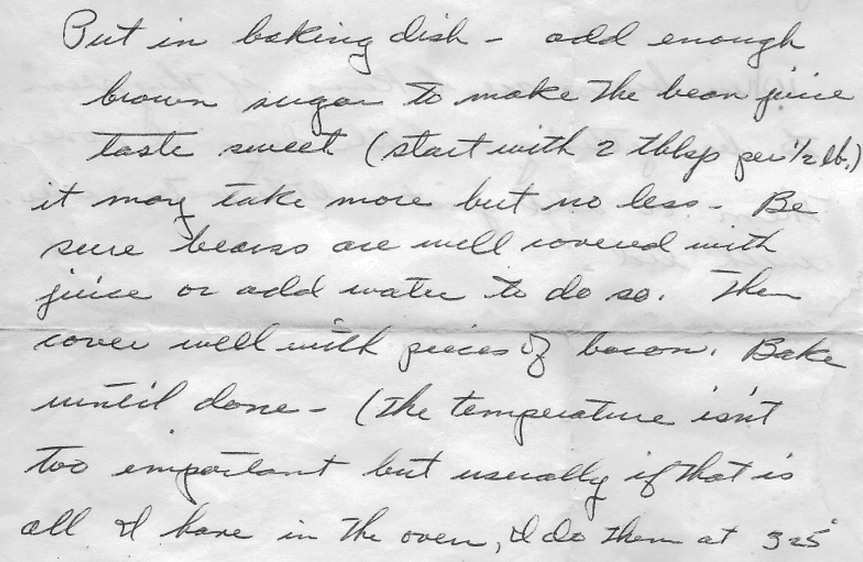 Put in baking dish - add enough
brown sugar to make the bean juice
taste sweet (start with 2 tblsp per 1/2 lb.)
it may take more but no less - Be
sure beans are well covered with
juice or add water to do so. Then
cover well with pieces of bacon. Bake
until done - (the temperature isn't
too important but usually if that is
all I have in the oven, I do them at 325°